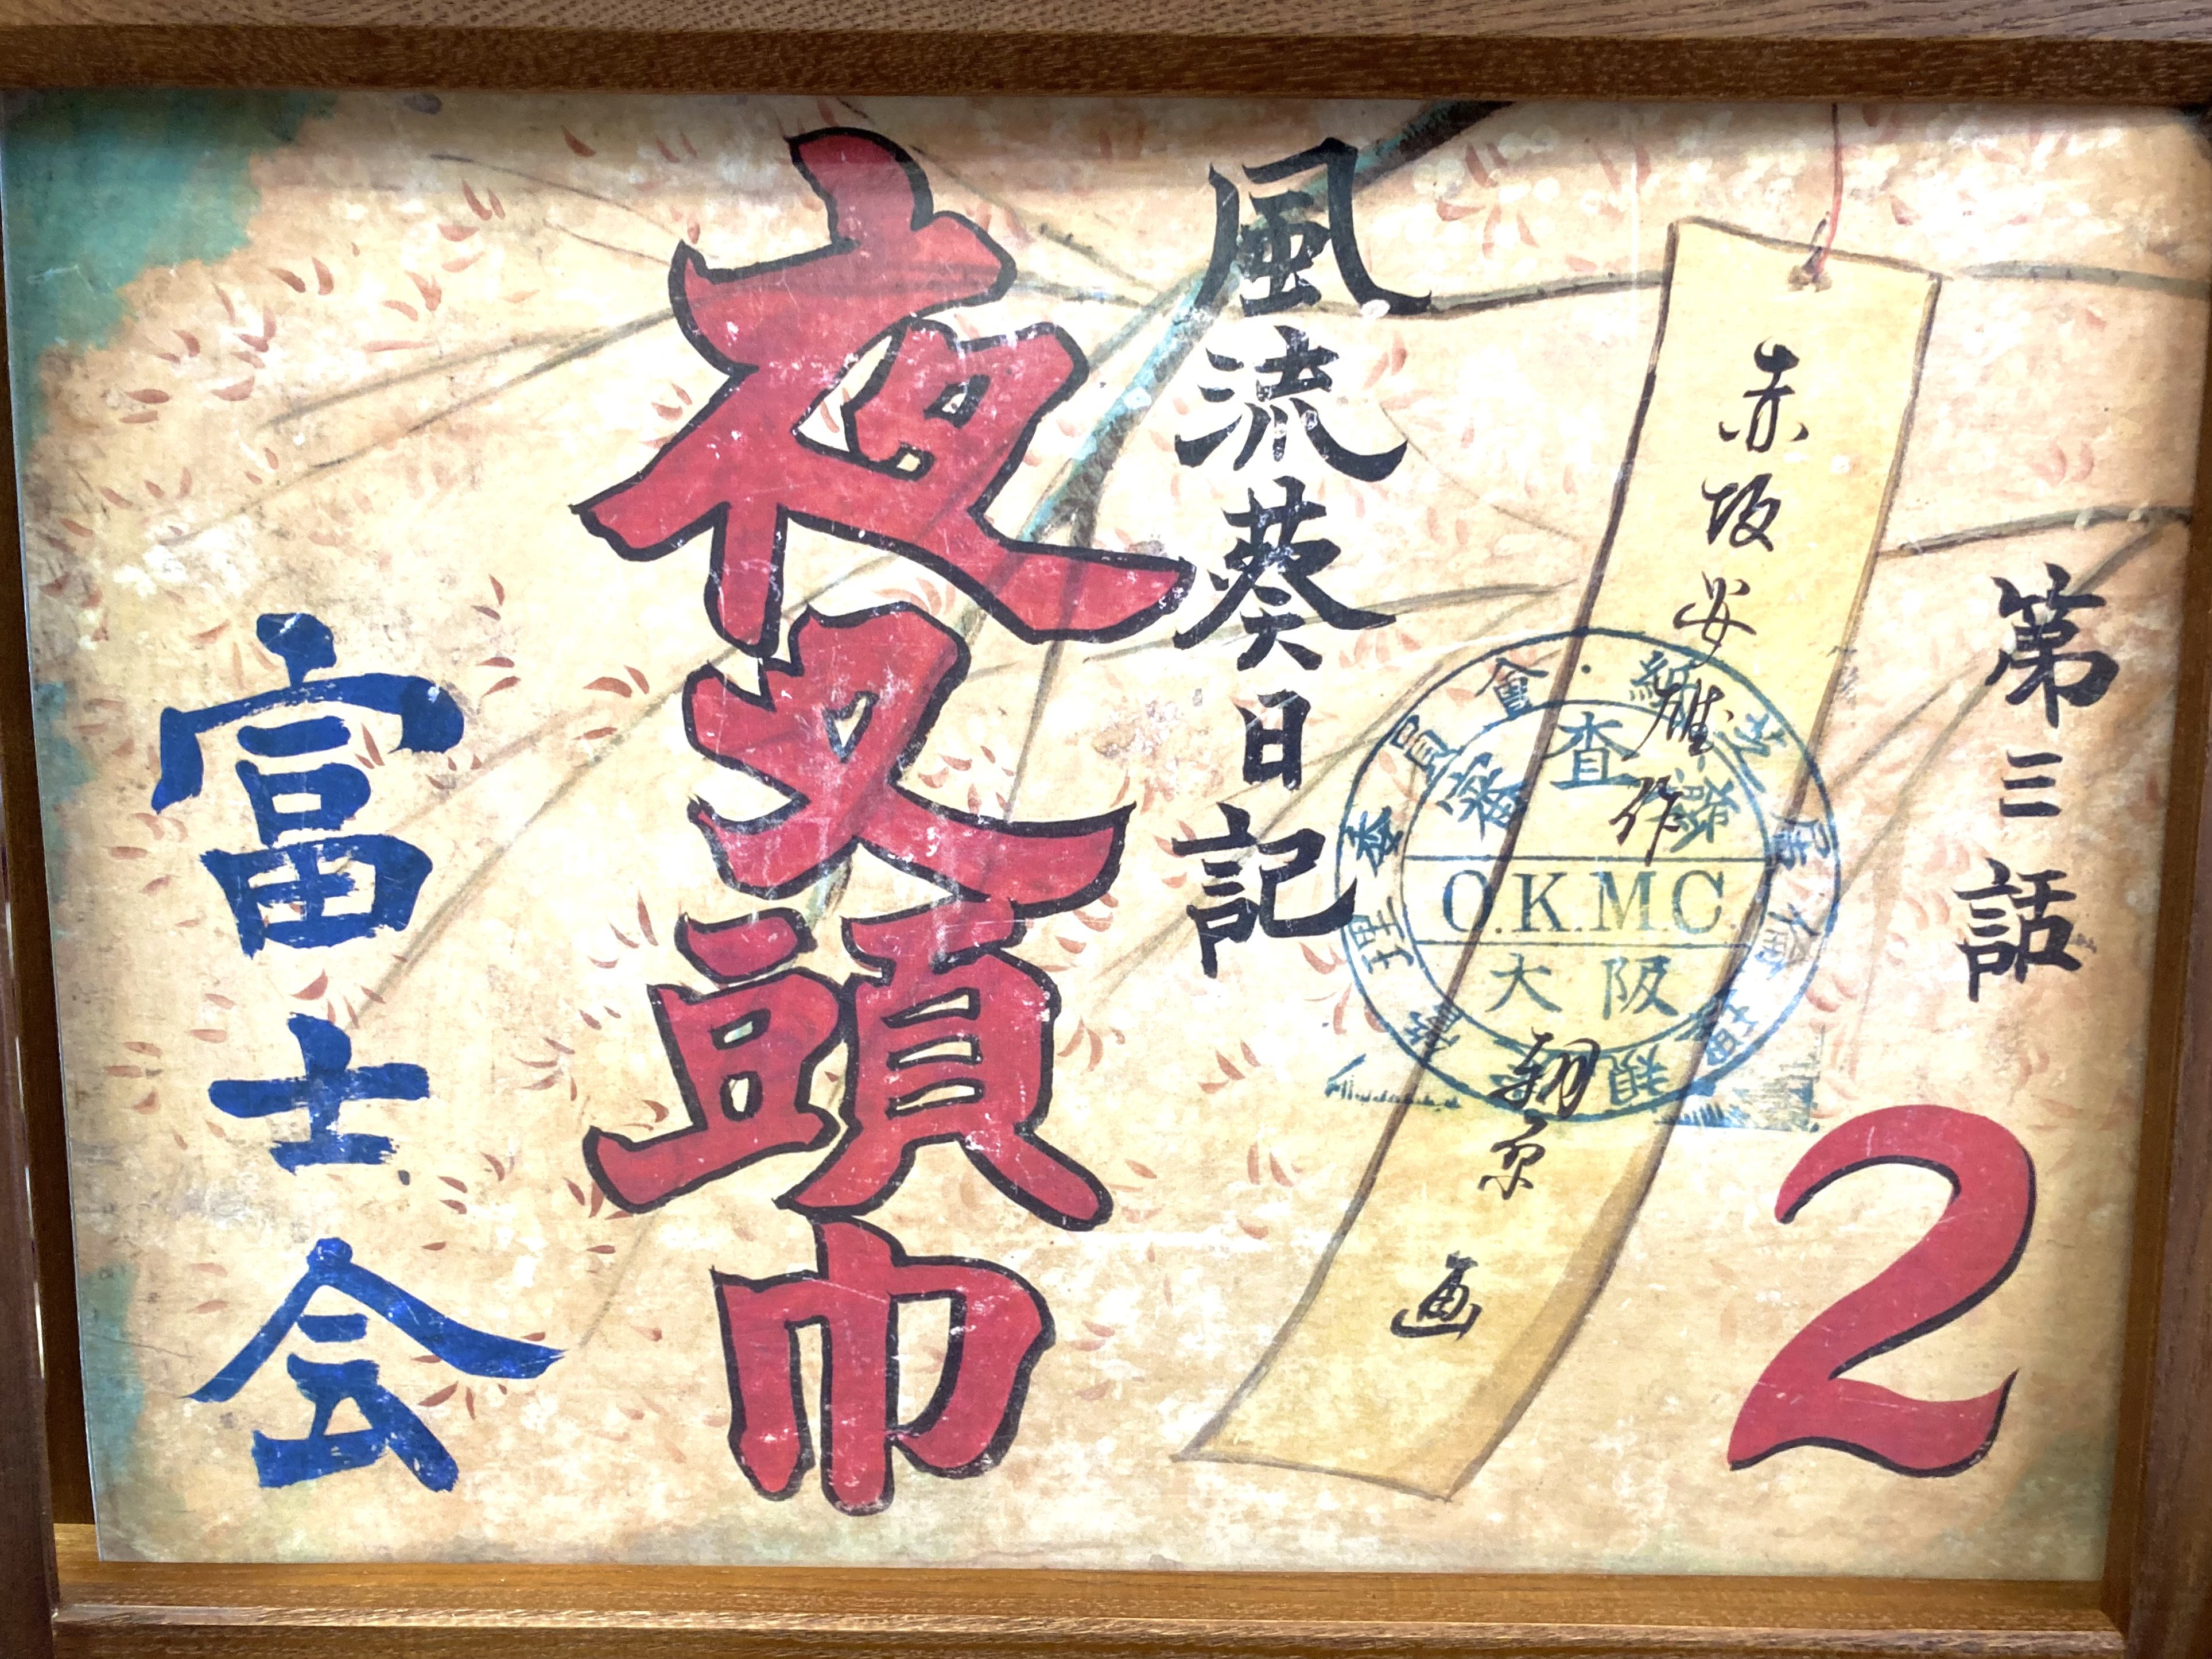 第三話
2
赤坂安雄作
朝京画
風流葵日記
夜叉頭巾
富士会
審査
O.K.M.C.
大阪